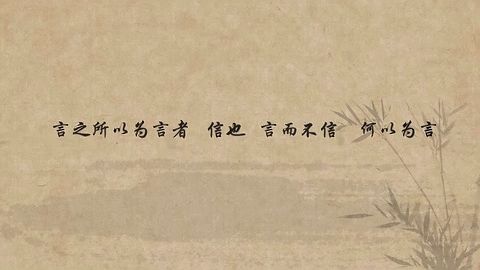 言之所以为言者 信也 言而不信 何以为言